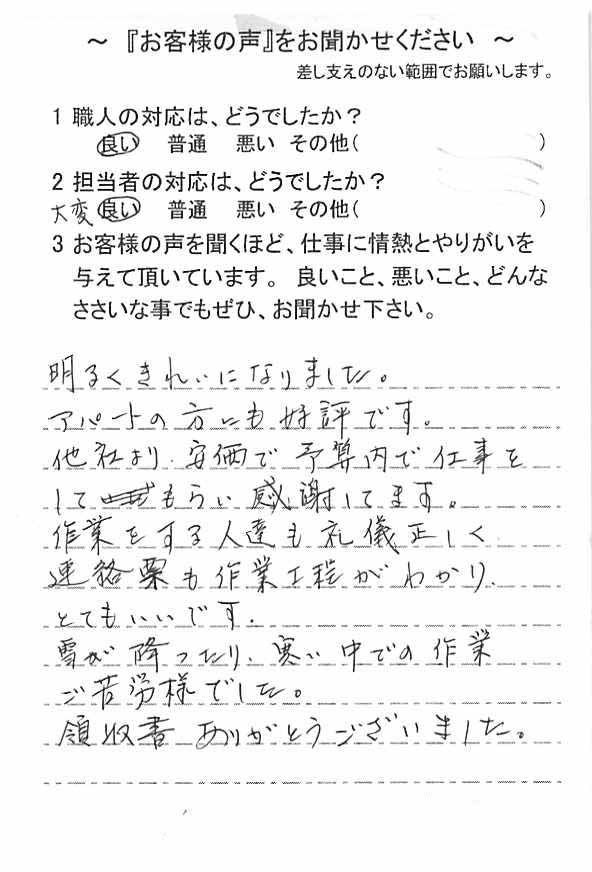 ～ 『お客様の声』をお聞かせください ～
差し支えのない範囲でお願いします。
1 職人の対応は、どうでしたか？
良い 普通 悪い その他( )
2 担当者の対応は、どうでしたか？
大変 良い 普通 悪い その他( )
3 お客様の声を聞くほど、仕事に情熱とやりがいを
与えて頂いています。 良いこと、悪いこと、どんな
ささいな事でもぜひ、お聞かせ下さい。
明るくきれいになりました。
アパートの方にも好評です。
他社より、安価で予算内で仕事を
してもらい感謝してます。
作業をする人達も礼儀正しく
連絡票も作業工程がわかり、
とてもいいです.
雪が降ったり、寒い中での作業
ご苦労様でした。
領収書 ありがとうございました。